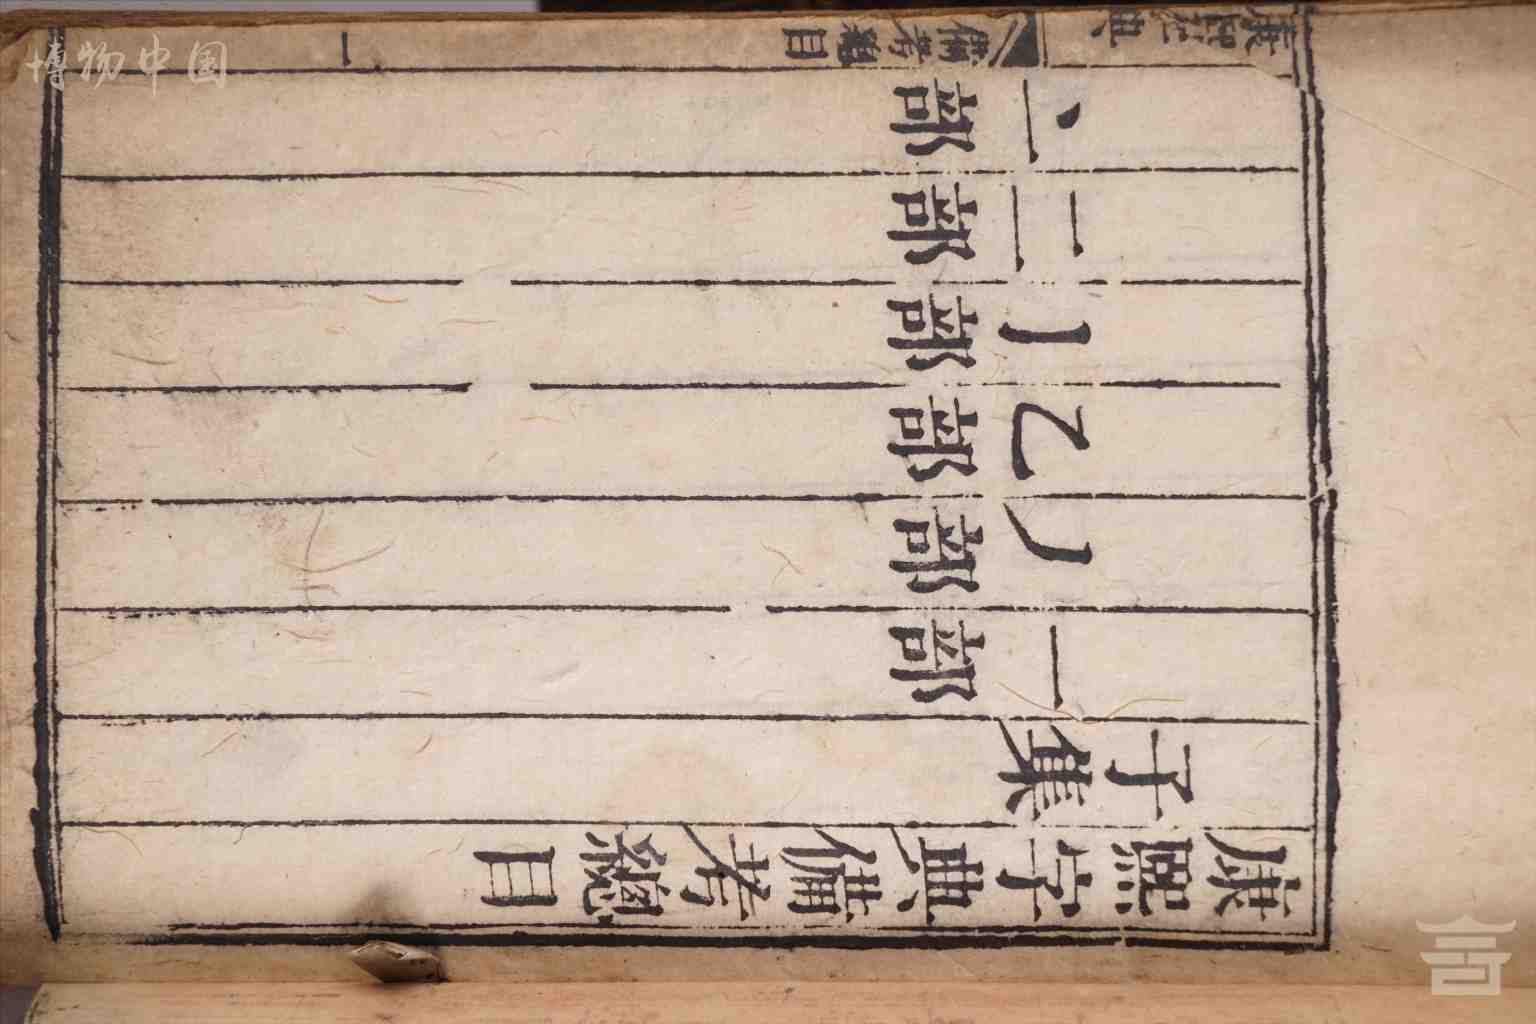 康熙字典備考總目
子集
一部
丿部
乙部
亅部
二部
亠部
康熙字典
備考總目
一
博物中国